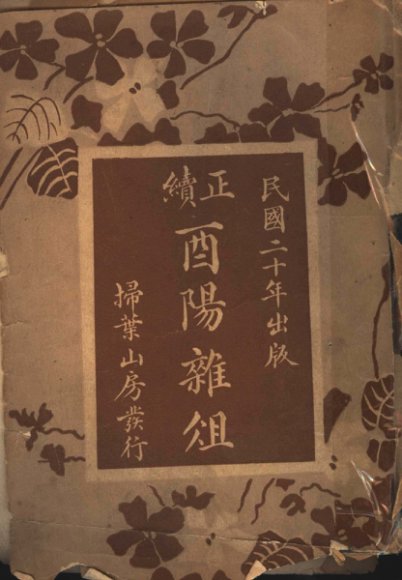 民國二十年出版
正續
酉陽雜俎
掃葉山房發行